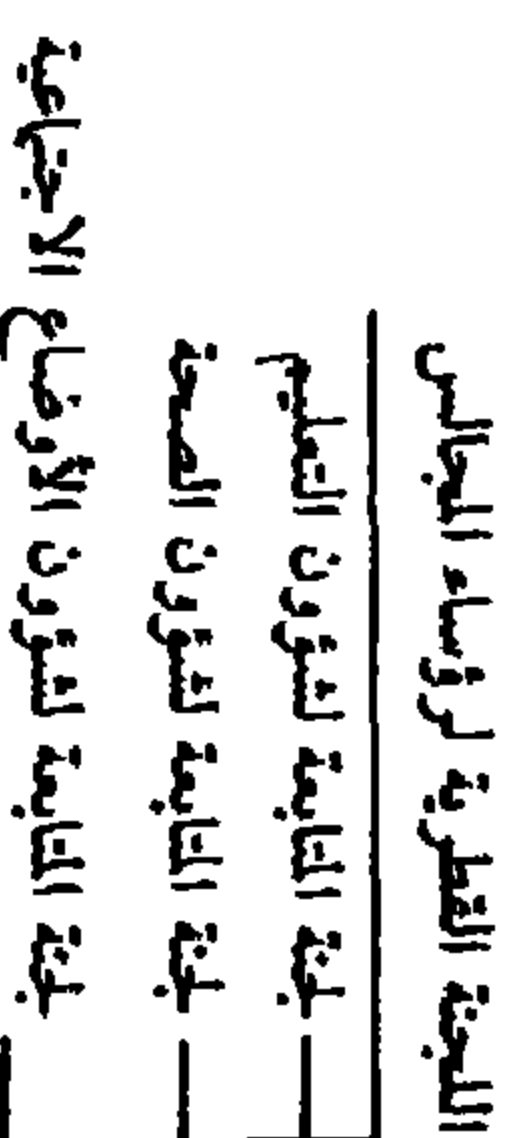 اللجنة القطرية لرؤساء المجالس
لجنة المتابعة لشؤون التعليم
لجنة المتابعة لشؤون الصحة
لجنة المتابعة لشؤون الأوضاع الاجتماعية